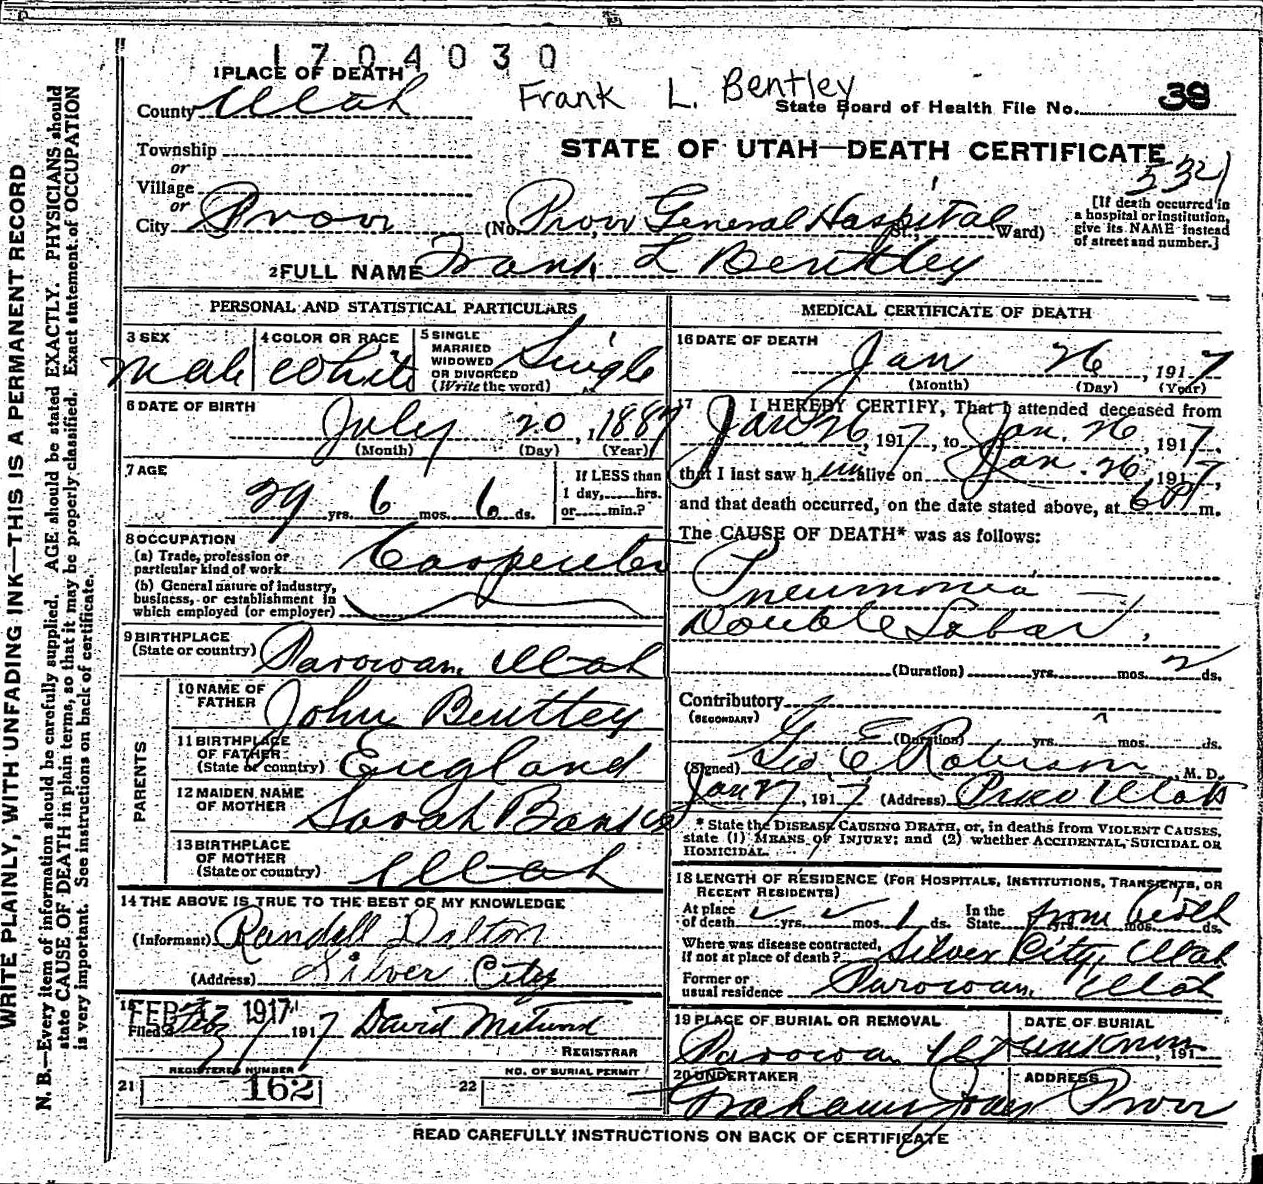 1704030
1 PLACE OF DEATH
Frank L. Bentley
County Utah
State Board of Health File No. 38
Township
STATE OF UTAH—DEATH CERTIFICATE
or
Village
or
[If death occurred in
a hospital or institution,
give its NAME instead
of street and number.]
City Provo (No. Provo General Hospital St., Ward)
2 FULL NAME Frank L Bentley
PERSONAL AND STATISTICAL PARTICULARS
3 SEX
Male
4 COLOR OR RACE
White
5 SINGLE
MARRIED
WIDOWED
OR DIVORCED
(Write the word)
Single
6 DATE OF BIRTH
July 20, 1887
(Month) (Day) (Year)
7 AGE
29 yrs. 6 mos. 6 ds.
If LESS than
1 day, hrs.
or min.?
8 OCCUPATION
(a) Trade, profession or
particular kind of work Carpenter
(b) General nature of industry,
business, or establishment in
which employed (or employer)
9 BIRTHPLACE
(State or country) Parowan, Utah
PARENTS
10 NAME OF
FATHER John Bentley
11 BIRTHPLACE
OF FATHER
(State or country) England
12 MAIDEN NAME
OF MOTHER Sarah
13 BIRTHPLACE
OF MOTHER
(State or country) Utah
14 THE ABOVE IS TRUE TO THE BEST OF MY KNOWLEDGE
(Informant) Randall Dalton
(Address) Silver City
15 FEB 1917
Filed 1917 David
REGISTRAR
REGISTERED NUMBER
21 162
NO. OF BURIAL PERMIT
22
MEDICAL CERTIFICATE OF DEATH
16 DATE OF DEATH
Jan 26, 1917
(Month) (Day) (Year)
17 I HEREBY CERTIFY, That I attended deceased from
Jan 26, 1917, to Jan. 26, 1917,
that I last saw him alive on Jan. 26, 1917,
and that death occurred, on the date stated above, at 6 P m.
The CAUSE OF DEATH* was as follows:
Pneumonia —
Double Lobar.
(Duration) yrs. mos. 2 ds.
Contributory
(SECONDARY)
(Duration) yrs. mos. ds.
(Signed) Geo E Robison, M. D.
Jan 27, 1917 (Address) Provo Utah
* State the DISEASE CAUSING DEATH, or, in deaths from VIOLENT CAUSES,
state (1) MEANS OF INJURY; and (2) whether ACCIDENTAL, SUICIDAL OR
HOMICIDAL.
18 LENGTH OF RESIDENCE (FOR HOSPITALS, INSTITUTIONS, TRANSIENTS, OR
RECENT RESIDENTS)
At place
of death yrs. mos. 1 ds. In the
State from birth yrs. mos. ds.
Where was disease contracted,
if not at place of death? Silver City, Utah
Former or
usual residence Parowan, Utah
19 PLACE OF BURIAL OR REMOVAL
Parowan Ut
DATE OF BURIAL
unknown, 191
20 UNDERTAKER
ADDRESS
Provo
READ CAREFULLY INSTRUCTIONS ON BACK OF CERTIFICATE
WRITE PLAINLY, WITH UNFADING INK—THIS IS A PERMANENT RECORD
N. B.—Every item of information should be carefully supplied. AGE should be stated EXACTLY. PHYSICIANS should
state CAUSE OF DEATH in plain terms, so that it may be properly classified. Exact statement of OCCUPATION
is very important. See instructions on back of certificate.